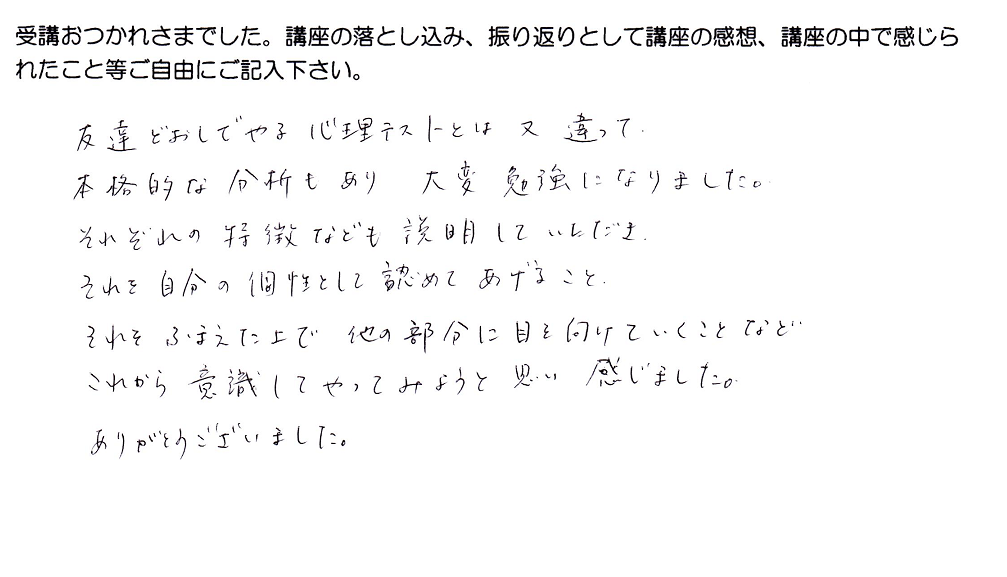 受講おつかれさまでした。講座の落とし込み、振り返りとして講座の感想、講座の中で感じら
れたこと等ご自由にご記入下さい。
友達どおしでやる心理テストとは又違って、
本格的な分析もあり 大変勉強になりました。
それぞれの特徴なども説明していただき、
それを自分の個性として認めてあげること、
それをふまえた上で他の部分に目を向けていくことなど
これから意識してやってみようと思い感じました。
ありがとうございました。